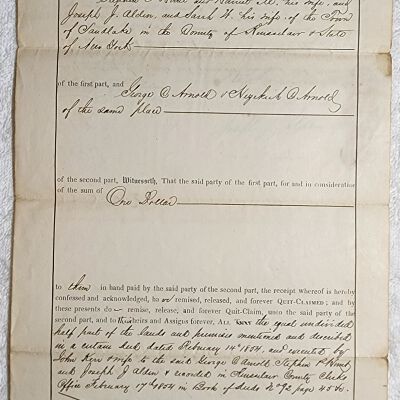 Stephen P. Hunt and Harriet M. his wife, and
Joseph J. Alden, and Sarah H. his wife, of the Town
of Sandlake in the County of Rensselaer & State
of New York
of the first part, and George C Arnold & C Arnold
of the same place
of the second part, Witnesseth, That the said party of the first part, for and in consideration
of the sum of One Dollar
to them in hand paid by the said party of the second part, the receipt whereof is hereby
confessed and acknowledged, to remised, released, and forever QUIT-CLAIMED; and by
these presents do remise, release, and forever Quit-Claim, unto the said party of the
second part, and to their heirs and Assigns forever, ALL the equal undivided
half part of the lands and premises mentioned and described
in a certain deed dated February 14th 1854, and executed by
John Kerr & wife to the said George C Arnold, Stephen P Hunt
and Joseph J Alden & recorded in Rensselaer County Clerks
Office February 17th 1854 in Book of deeds No 92 page 45 &c.